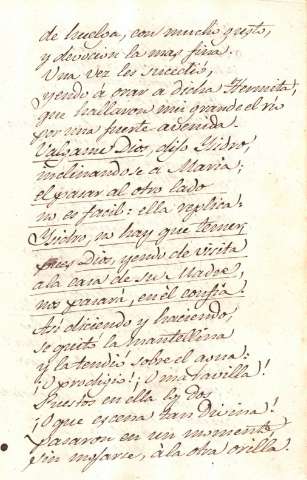 de huelva, con mucho gusto,
y devocion la mas fina.
Una vez les sucedió,
yendo á orar a dicha Hermita,
que hallaron mui grande el rio
por una fuerte avenida.
Valgame Dios, dijo Ysidro,
inclinandose a Maria;
el pasar al otro lado
no es facil: ella replica:
Ysidro, no hay que temer,
pues Dios, yendo de visita
a la casa de su Madre,
nos pasará, en èl confia.
Asi diciendo y haciendo,
se quitó la mantellina
y la tendió sobre el agua:
¡O prodigio! ¡O maravilla!
Puestos en ella los dos
¡O que escena tan Divina!
pasaron en un momento,
sin mojarse, à la otra orilla.